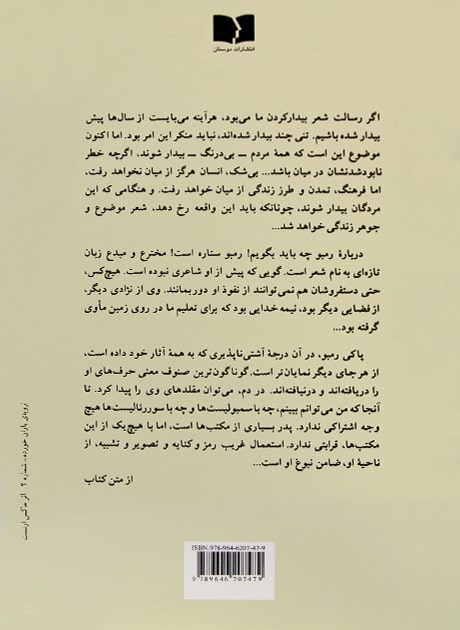 انتشارات بوستان
اگر رسالت شعر بیدارکردن ما می‌بود، هرآینه می‌بایست از سال‌ها پیش
بیدار شده باشیم. تنی چند بیدار شده‌اند، نباید منکر این امر بود. اما اکنون
موضوع این است که همهٔ مردم ــ بی‌درنگ ــ بیدار شوند، اگرچه خطر
نابودشدنشان در میان باشد... بی‌شک، انسان هرگز از میان نخواهد رفت،
اما فرهنگ، تمدن و طرز زندگی از میان خواهد رفت. و هنگامی که این
مردگان بیدار شوند، چونانکه باید این واقعه رخ دهد، شعر موضوع و
جوهر زندگی خواهد شد...
دربارهٔ رمبو چه باید بگویم! رمبو ستاره است! مخترع و مبدع زبان
تازه‌ای به نام شعر است. گویی که پیش از او شاعری نبوده است. هیچ‌کس،
حتی دستفروشان هم نمی‌توانند از نفوذ او دور بمانند. وی از نژادی دیگر،
از فضایی دیگر بود، نیمه خدایی بود که برای تعلیم ما در روی زمین مأوی
گرفته بود...
پاکی رمبو، در آن درجهٔ آشتی‌ناپذیری که به همهٔ آثار خود داده است،
از هرجای دیگر نمایان‌تر است. گوناگون‌ترین صنوف معنی حرف‌های او
را دریافته‌اند و درنیافته‌اند. در دم، می‌توان مقلدهای وی را پیدا کرد. تا
آنجا که من می‌توانم ببینم، چه با سمبولیست‌ها و چه با سوررئالیست‌ها هیچ
وجه اشتراکی ندارد. پدر بسیاری از مکتب‌ها است، اما با هیچ‌یک از این
مکتب‌ها، قرابتی ندارد. استعمال غریب رمز و کنایه و تصویر و تشبیه، از
ناحیهٔ او، ضامن نبوغ او است...
از متن کتاب
روبه‌ی باران خورده – شماره ۲ اثر ماکس ارنست
ISBN: 978-964-6207-47-9
9 789646 207479